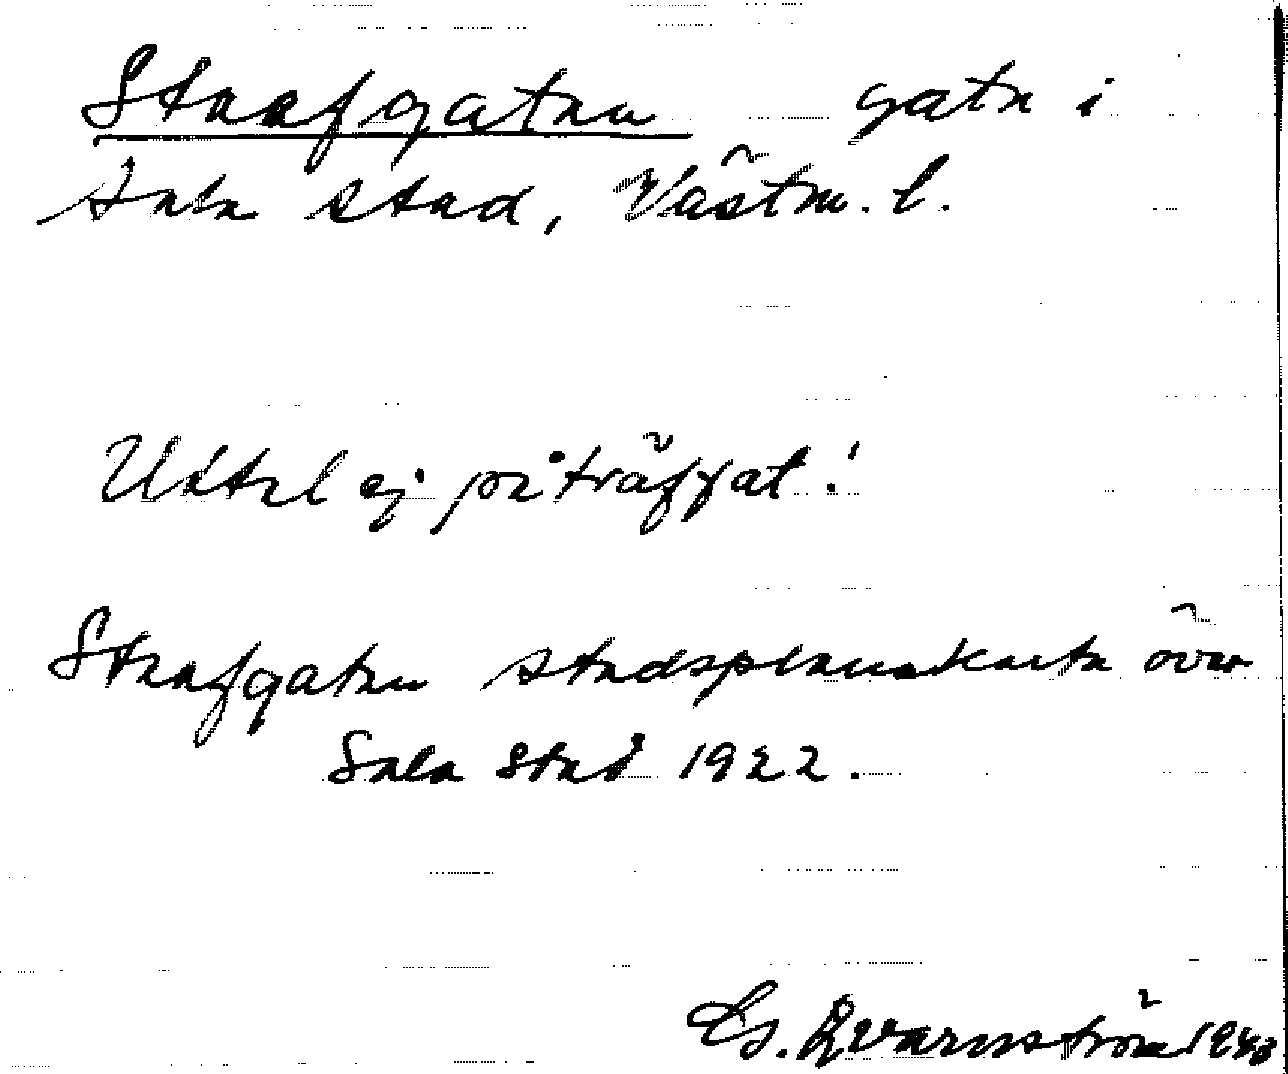 Strafgatan gata i
Sala stad, Västm. l.
Uttal ej påträffat!
Strafgatan stadsplanekarta över
Sala stad 1922.
G. Qvarnström 1943